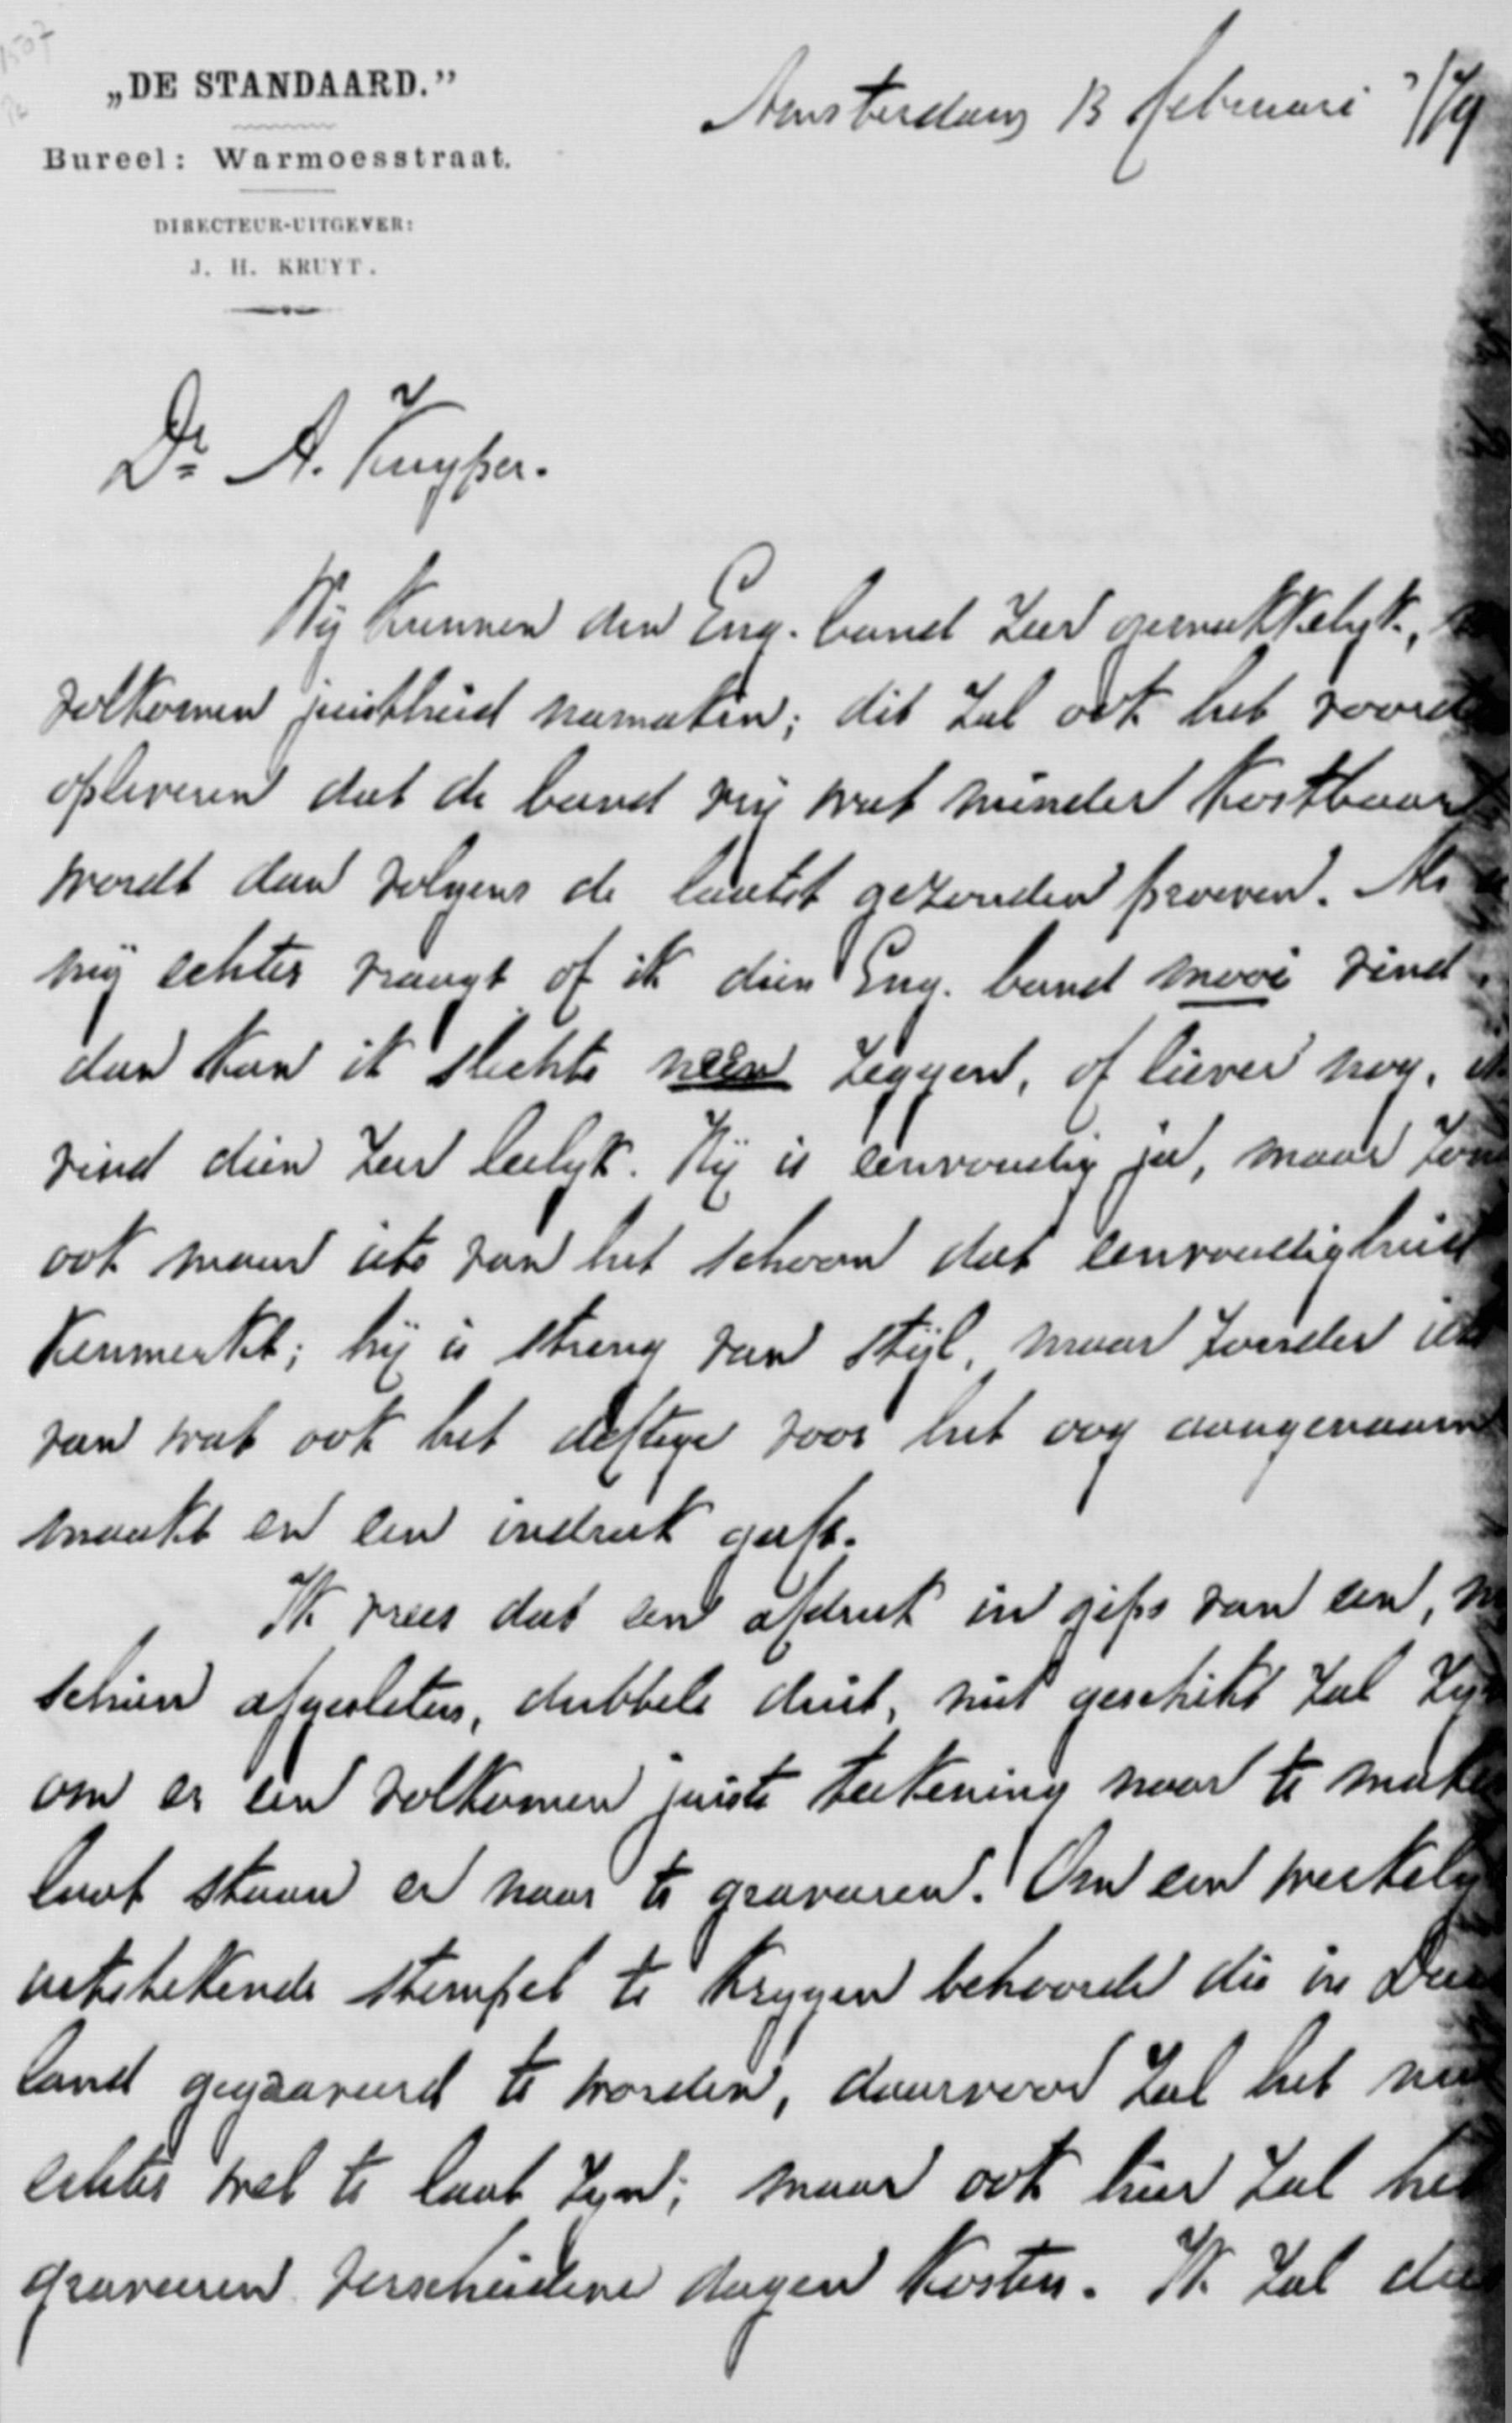 1507
„DE STANDAARD.”
Bureel: Warmoesstraat.
DIRECTEUR-UITGEVER:
J. H. KRUYT.
Amsterdam 13 februari '79
Dr A. Kuyper.
Wij kunnen den Eng. band zeer gemakkelijk,
volkomen juistheid namaken; dit zal ook het voord
opleveren dat de band vrij wat minder kostbaar
wordt dan volgens de laatst gezonden proeven. Als
mij echter vraagt of ik dien Eng. band mooi vind
dan kan ik slechts neen zeggen, of liever nog, ik
vind dien zeer leelijk. Hij is eenvoudig ja, maar zon
ook maar iets van het schoon dat eenvoudigheid
kenmerkt; hij is streng van stijl, maar zonder iets
van wat ook het deftige voor het oog aangenaam
maakt en een indruk geeft.
Ik vrees dat een afdruk in gips van een, m
schien afgesleten, dubbele duit, niet geschikt zal zij
om er een volkomen juiste teekening naar te make
laat staan er naar te graveeren. Om een werkelij
uitstekende stempel te krijgen behoorde die in Dui
land gegraveerd te worden, daarvoor zal het nu
echter wel te laat zijn; maar ook hier zal het
graveeren verscheidene dagen kosten. Ik zal die